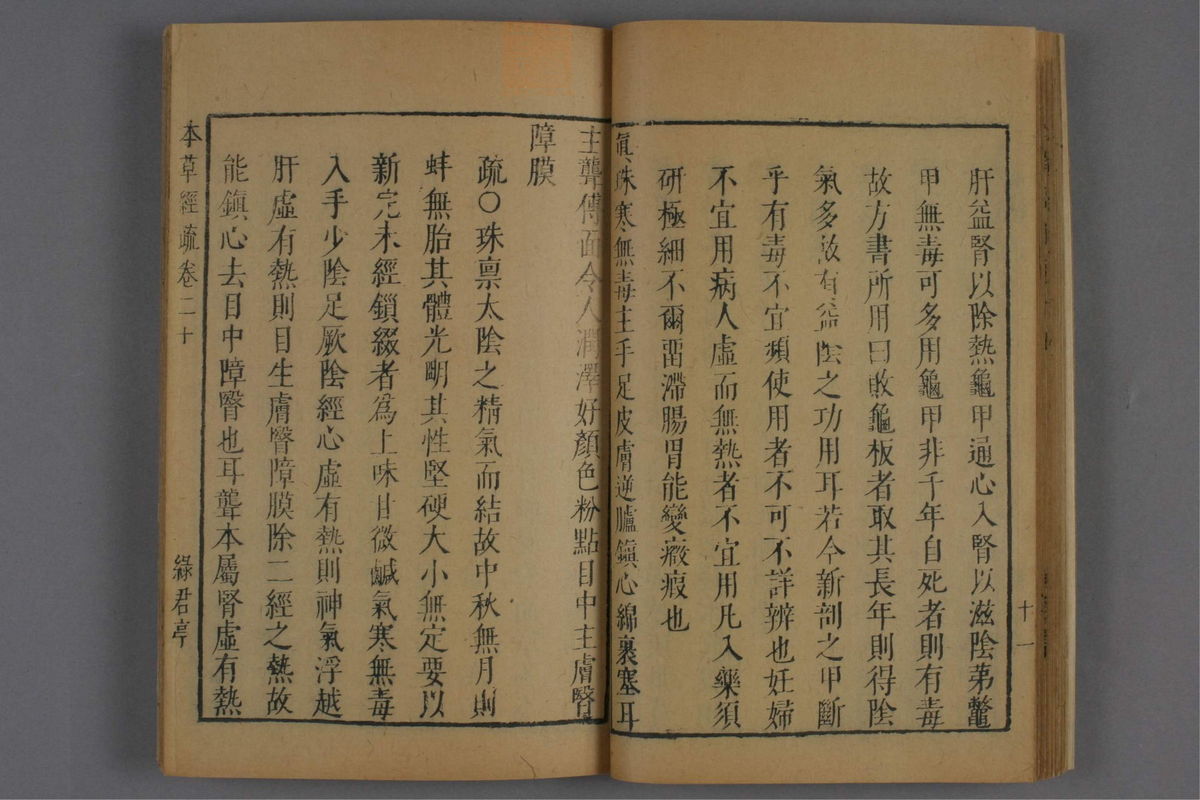 肝益腎以除熱龜甲通心入腎以滋陰苐鼈
甲無毒可多用龜甲非千年自死者則有毒
故方書所用曰敗龜板者取其長年則得陰
氣多故有益陰之功用耳若今新剖之甲斷
乎有毒不宜頻使用者不可不詳辨也妊婦
不宜用病人虛而無熱者不宜用凡入藥須
研極細不爾畱滯腸胃能變癥瘕也
珠寒無毒主手足皮膚逆臚鎮心綿裹塞耳
主聾傅面令人潤澤好顏色粉點目中主膚瞖
障膜
疏○珠禀太陰之精氣而結故中秋無月則
蚌無胎其體光明其性堅硬大小無定要以
新完未經鎖綴者為上味甘微鹹氣寒無毒
入手少陰足厥陰經心虛有熱則神氣浮越
肝虛有熱則目生膚瞖障膜除二經之熱故
能鎮心去目中障瞖也耳聾本屬腎虛有熱
本草經疏卷二十
綠君亭
十一